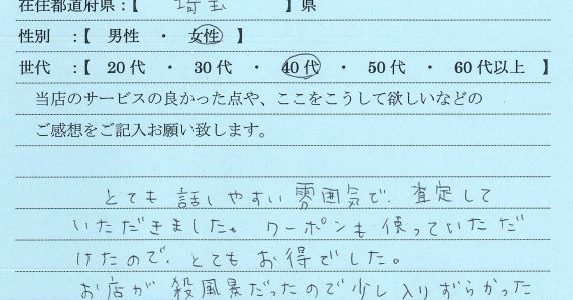 在住都道府県：【 埼玉 】県
性別 ：【 男性 ・ 女性 】
世代 ：【 20代 ・ 30代 ・ 40代 ・ 50代 ・ 60代以上 】
当店のサービスの良かった点や、ここをこうして欲しいなどの
ご感想をご記入お願い致します。
とても 話しやすい 雰囲気で、査定して
いただきました。クーポンも 使っていただ
けたので、とても お得でした。
お店が 殺風景だったので 少し 入りずらかった